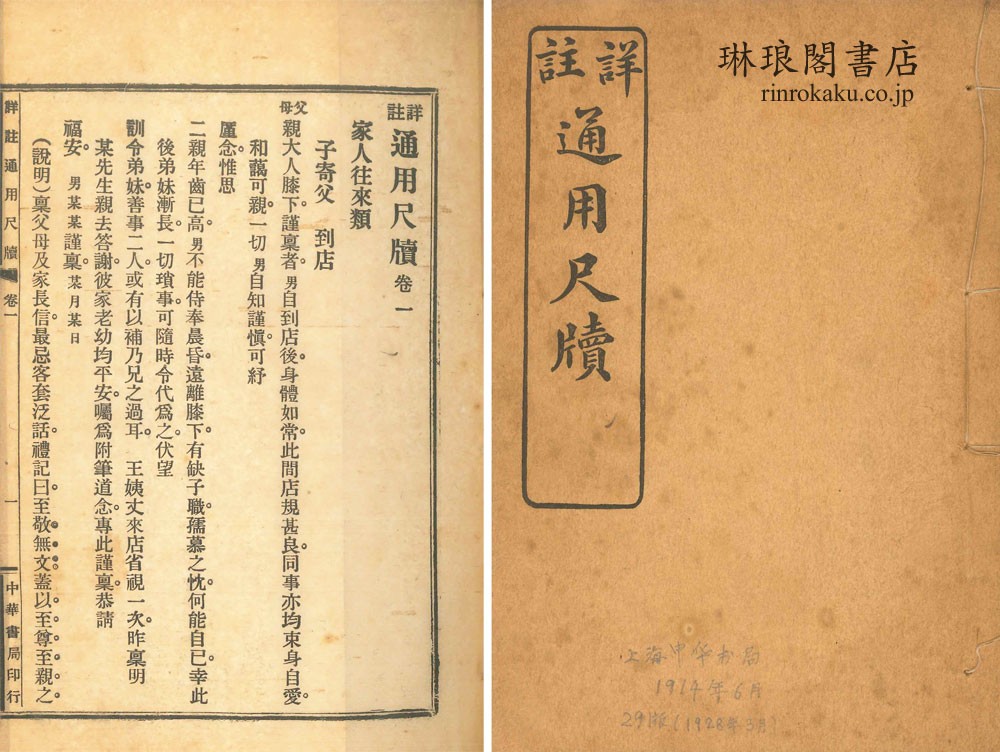 詳註通用尺牘卷一
家人往來類
子寄父 到店
父母親大人膝下謹稟者男自到店後身體如常此間店規甚良同事亦均束身自愛。
和藹可親一切男自知謹愼可紓
廑念惟思
二親年齒已高男不能侍奉晨昏遠離膝下有缺子職孺慕之忱何能自已幸此
後弟妹漸長一切瑣事可隨時令代爲之伏望
訓令弟妹善事二人或有以補乃兄之過耳 王姨丈來店省視一次昨稟明
某先生親去答謝彼家老幼均平安囑爲附筆道念專此謹稟恭請
福安。 男某某謹稟某月某日
(說明)稟父母及家長信最忌客套泛話禮記曰至敬無文蓋以至尊至親之
詳註通用尺牘 卷一 一 中華書局印行
詳註
通用尺牘
琳琅閣書店
rinrokaku.co.jp
上海中华书局
1914年6月
29版(1928年3月)